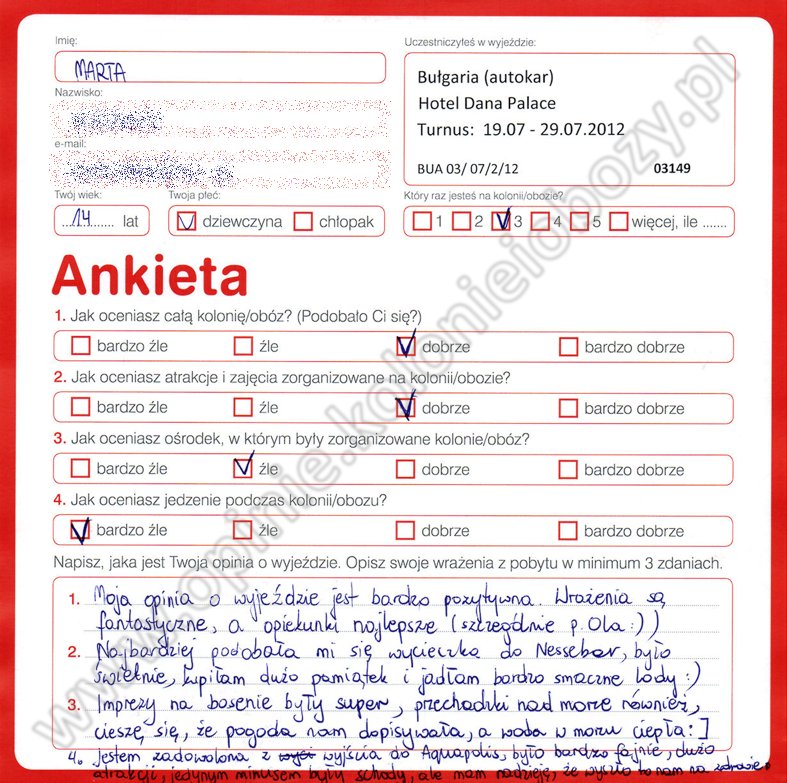 Imię:
MARTA
Nazwisko:
e-mail:
Twój wiek:
14 lat
Twoja płeć:
dziewczyna chłopak
Uczestniczyłeś w wyjeździe:
Bułgaria (autokar)
Hotel Dana Palace
Turnus: 19.07 - 29.07.2012
BUA 03/ 07/2/12 03149
Który raz jesteś na kolonii/obozie?
1 2 3 4 5 więcej, ile .......
Ankieta
1. Jak oceniasz całą kolonię/obóz? (Podobało Ci się?)
bardzo źle źle dobrze bardzo dobrze
2. Jak oceniasz atrakcje i zajęcia zorganizowane na kolonii/obozie?
bardzo źle źle dobrze bardzo dobrze
3. Jak oceniasz ośrodek, w którym były zorganizowane kolonie/obóz?
bardzo źle źle dobrze bardzo dobrze
4. Jak oceniasz jedzenie podczas kolonii/obozu?
bardzo źle źle dobrze bardzo dobrze
Napisz, jaka jest Twoja opinia o wyjeździe. Opisz swoje wrażenia z pobytu w minimum 3 zdaniach.
1. Moja opinia o wyjeździe jest bardzo pozytywna. Wrażenia są
fantastyczne, a opiekunki najlepsze (szczególnie p. Ola :))
2. Najbardziej podobała mi się wycieczka do Nessebar, było
świetnie, kupiłam dużo pamiątek i jadłam bardzo smaczne lody :)
3. Imprezy na basenie były super, przechadzki nad morze również,
cieszę się, że pogoda nam dopisywała, a woda w morzu ciepła :]
4. Jestem zadowolona z wyjścia do Aquapolis, było bardzo fajnie, dużo
atrakcji, jedynym minusem były schody, ale mam nadzieję, że wyszło to nam na zdrowie
www.opinie.kolonieiobozy.pl